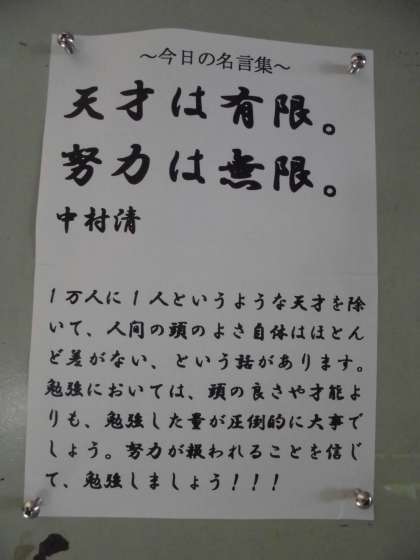 ～今日の名言集～
天才は有限。
努力は無限。
中村清
1万人に1人というような天才を除
いて、人間の頭のよさ自体はほとん
ど差がない、という話があります。
勉強においては、頭の良さや才能よ
りも、勉強した量が圧倒的に大事で
しょう。努力が報われることを信じ
て、勉強しましょう！！！